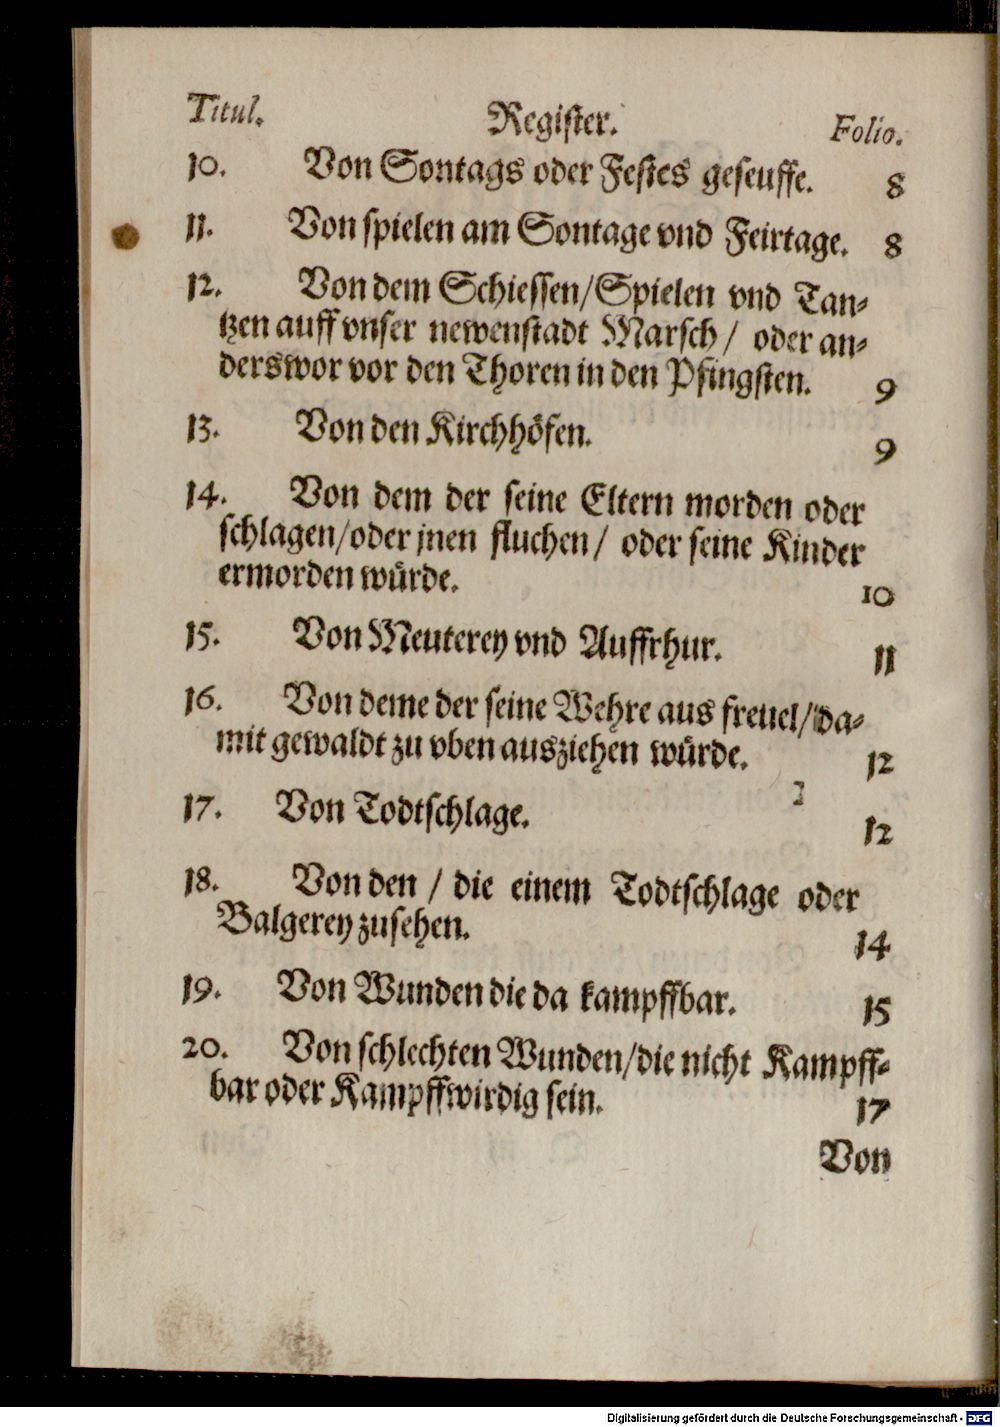 Titul. Register. Folio.
10. Von Sontags oder Festes geseuffe. 8
11. Von spielen am Sontage vnd Feirtage. 8
12. Von dem Schiessen/Spielen vnd Tan-
tzen auff vnser newenstadt Marsch/ oder an-
derswor vor den Thoren in den Pfingsten. 9
13. Von den Kirchhöfen. 9
14. Von dem der seine Eltern morden oder
schlagen/oder jnen fluchen/ oder seine Kinder
ermorden würde. 10
15. Von Meuterey vnd Auffrhur. 11
16. Von deme der seine Wehre aus freuel/da-
mit gewaldt zu vben ausziehen würde. 12
17. Von Todtschlage. 12
18. Von den / die einem Todtschlage oder
Balgerey zusehen. 14
19. Von Wunden die da kampffbar. 15
20. Von schlechten Wunden/die nicht Kampff-
bar oder Kampffwirdig sein. 17
Von
Digitalisierung gefördert durch die Deutsche Forschungsgemeinschaft - DFG